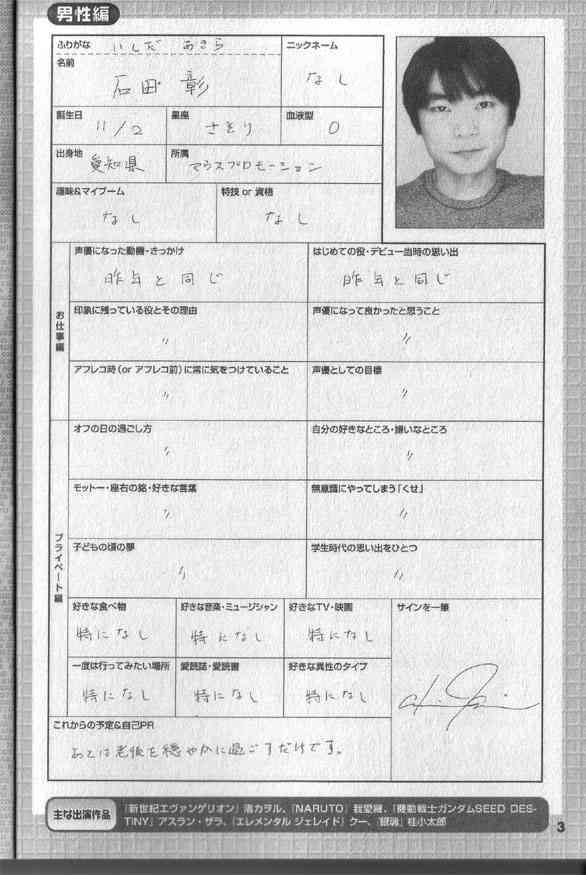 男性編
ふりがな いしだ あきら
ニックネーム
名前
石田 彰
なし
誕生日
11/2
星座
さそり
血液型
O
出身地
愛知県
所属
マウスプロモーション
趣味&マイブーム
なし
特技 or 資格
なし
お仕事編
声優になった動機・きっかけ
昨年と同じ
はじめての役・デビュー当時の思い出
昨年と同じ
印象に残っている役とその理由
〃
声優になって良かったと思うこと
〃
アフレコ時(or アフレコ前)に常に気をつけていること
〃
声優としての目標
〃
プライベート編
オフの日の過ごし方
〃
自分の好きなところ・嫌いなところ
〃
モットー・座右の銘・好きな言葉
〃
無意識にやってしまう「くせ」
〃
子どもの頃の夢
〃
学生時代の思い出をひとつ
〃
好きな食べ物
特になし
好きな音楽・ミュージシャン
特になし
好きなTV・映画
特になし
サインを一筆
一度は行ってみたい場所
特になし
愛読誌・愛読書
特になし
好きな異性のタイプ
特になし
これからの予定&自己PR
あとは老後を穏やかに過ごすだけです。
主な出演作品
『新世紀エヴァンゲリオン』渚カヲル、『NARUTO』我愛羅、『機動戦士ガンダムSEED DES-
TINY』アスラン・ザラ、『エレメンタル ジェレイド』クー、『銀魂』桂小太郎
3